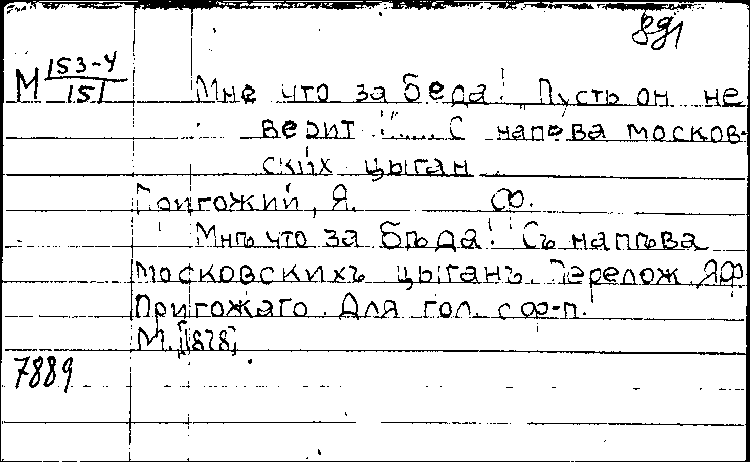 891
М 153-4/151
Мне что за беда! „Пусть он не
верит!"..... С напева москов-
ских цыган
Пригожий, Я. Ф.
Мнѣ что за бѣда! Съ напѣва
московскихъ цыганъ. Перелож. Я.Ф.
Пригожаго. Для гол. с ф-п.
М. [1878]
7889